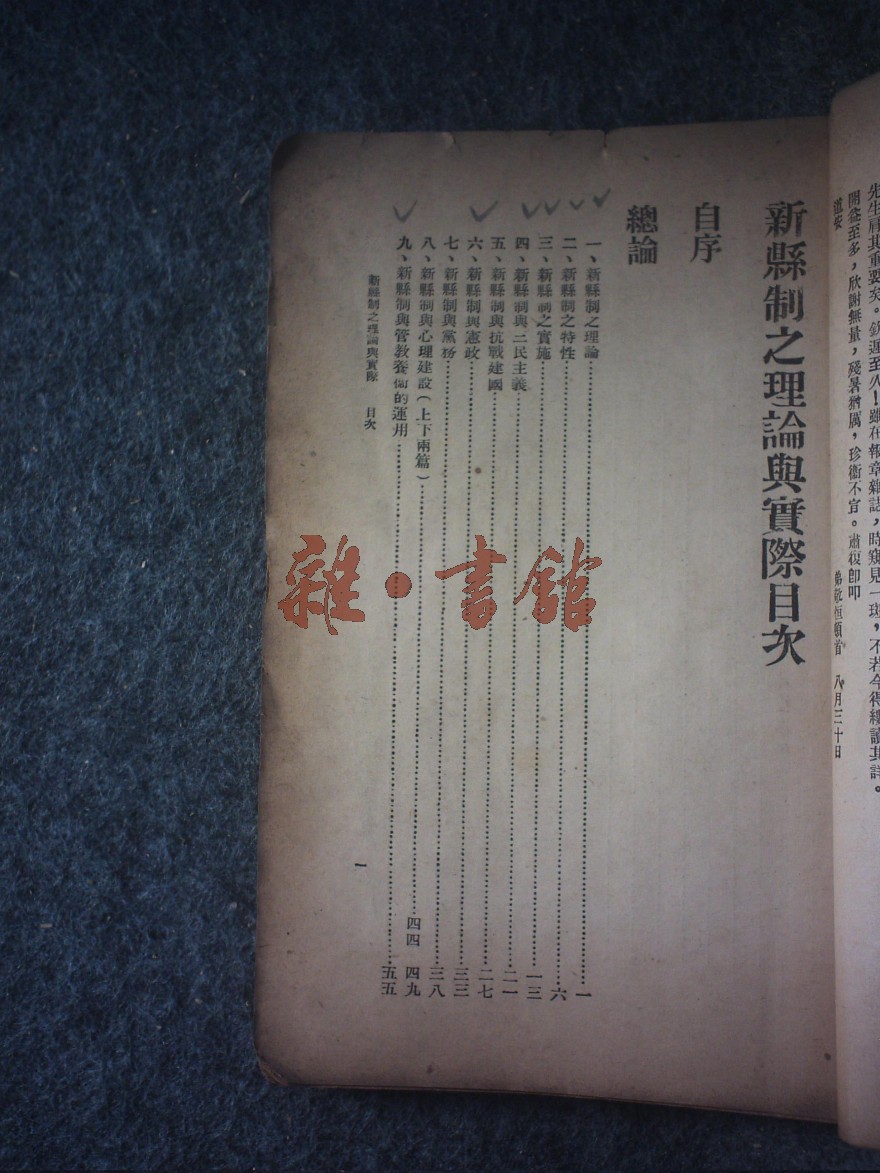 先生肩其重要矣。欽遲至久！雖在報章雜誌，時窺見一斑，不若今得縷讀其詳。
開益至多，欣謝無量，殘暑猶厲，珍衞不宣。肅復卽叩
道安
弟敬恒頓首 八月三十日
新縣制之理論與實際目次
自序
總論
一、新縣制之理論……一
二、新縣制之特性……六
三、新縣制之實施……一三
四、新縣制與三民主義……二一
五、新縣制與抗戰建國……二七
六、新縣制與憲政……三三
七、新縣制與黨務……三八
八、新縣制與心理建設（上下兩篇）……四四 四九
九、新縣制與管教養衞的運用……五五
新縣制之理論與實際 目次
一
雜·書館